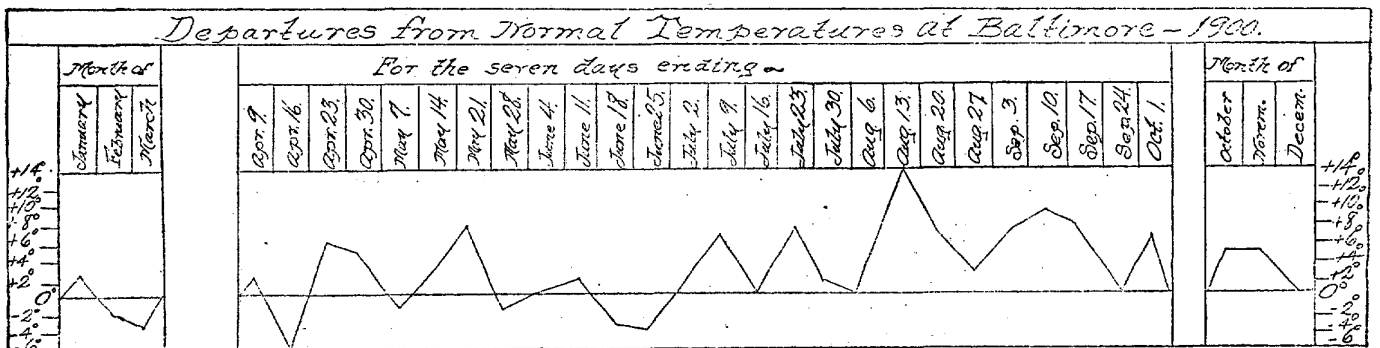 Departures from Normal Temperatures at Baltimore - 1900.
Month of
For the seven days ending
Month of
January
February
March
Apr. 9.
Apr. 16.
Apr. 23.
Apr. 30.
May 7.
May 14.
May 21.
May 28.
June 4.
June 11.
June 18.
June 25.
July 2.
July 9.
July 16.
July 23.
July 30.
Aug 6.
Aug 13.
Aug 20.
Aug 27.
Sep. 3.
Sep. 10.
Sep. 17.
Sep. 24.
Oct. 1.
October
Novem.
Decem.
+14°
+12°
+10°
+8°
+6°
+4°
+2°
0°
-2°
-4°
-6°
+14°
+12°
+10°
+8°
+6°
+4°
+2°
0°
-2°
-4°
-6°